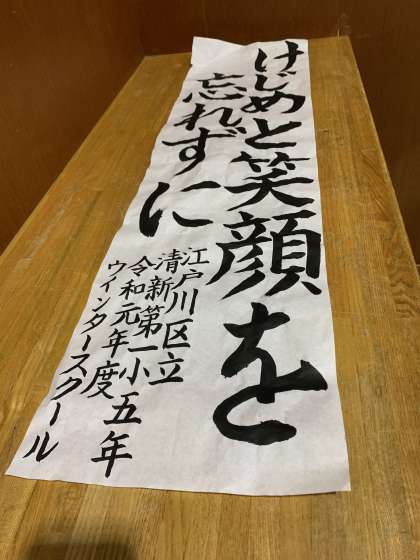 けじめと笑顔を
忘れずに
江戸川区立
清新第一小五年
令和元年度
ウインタースクール